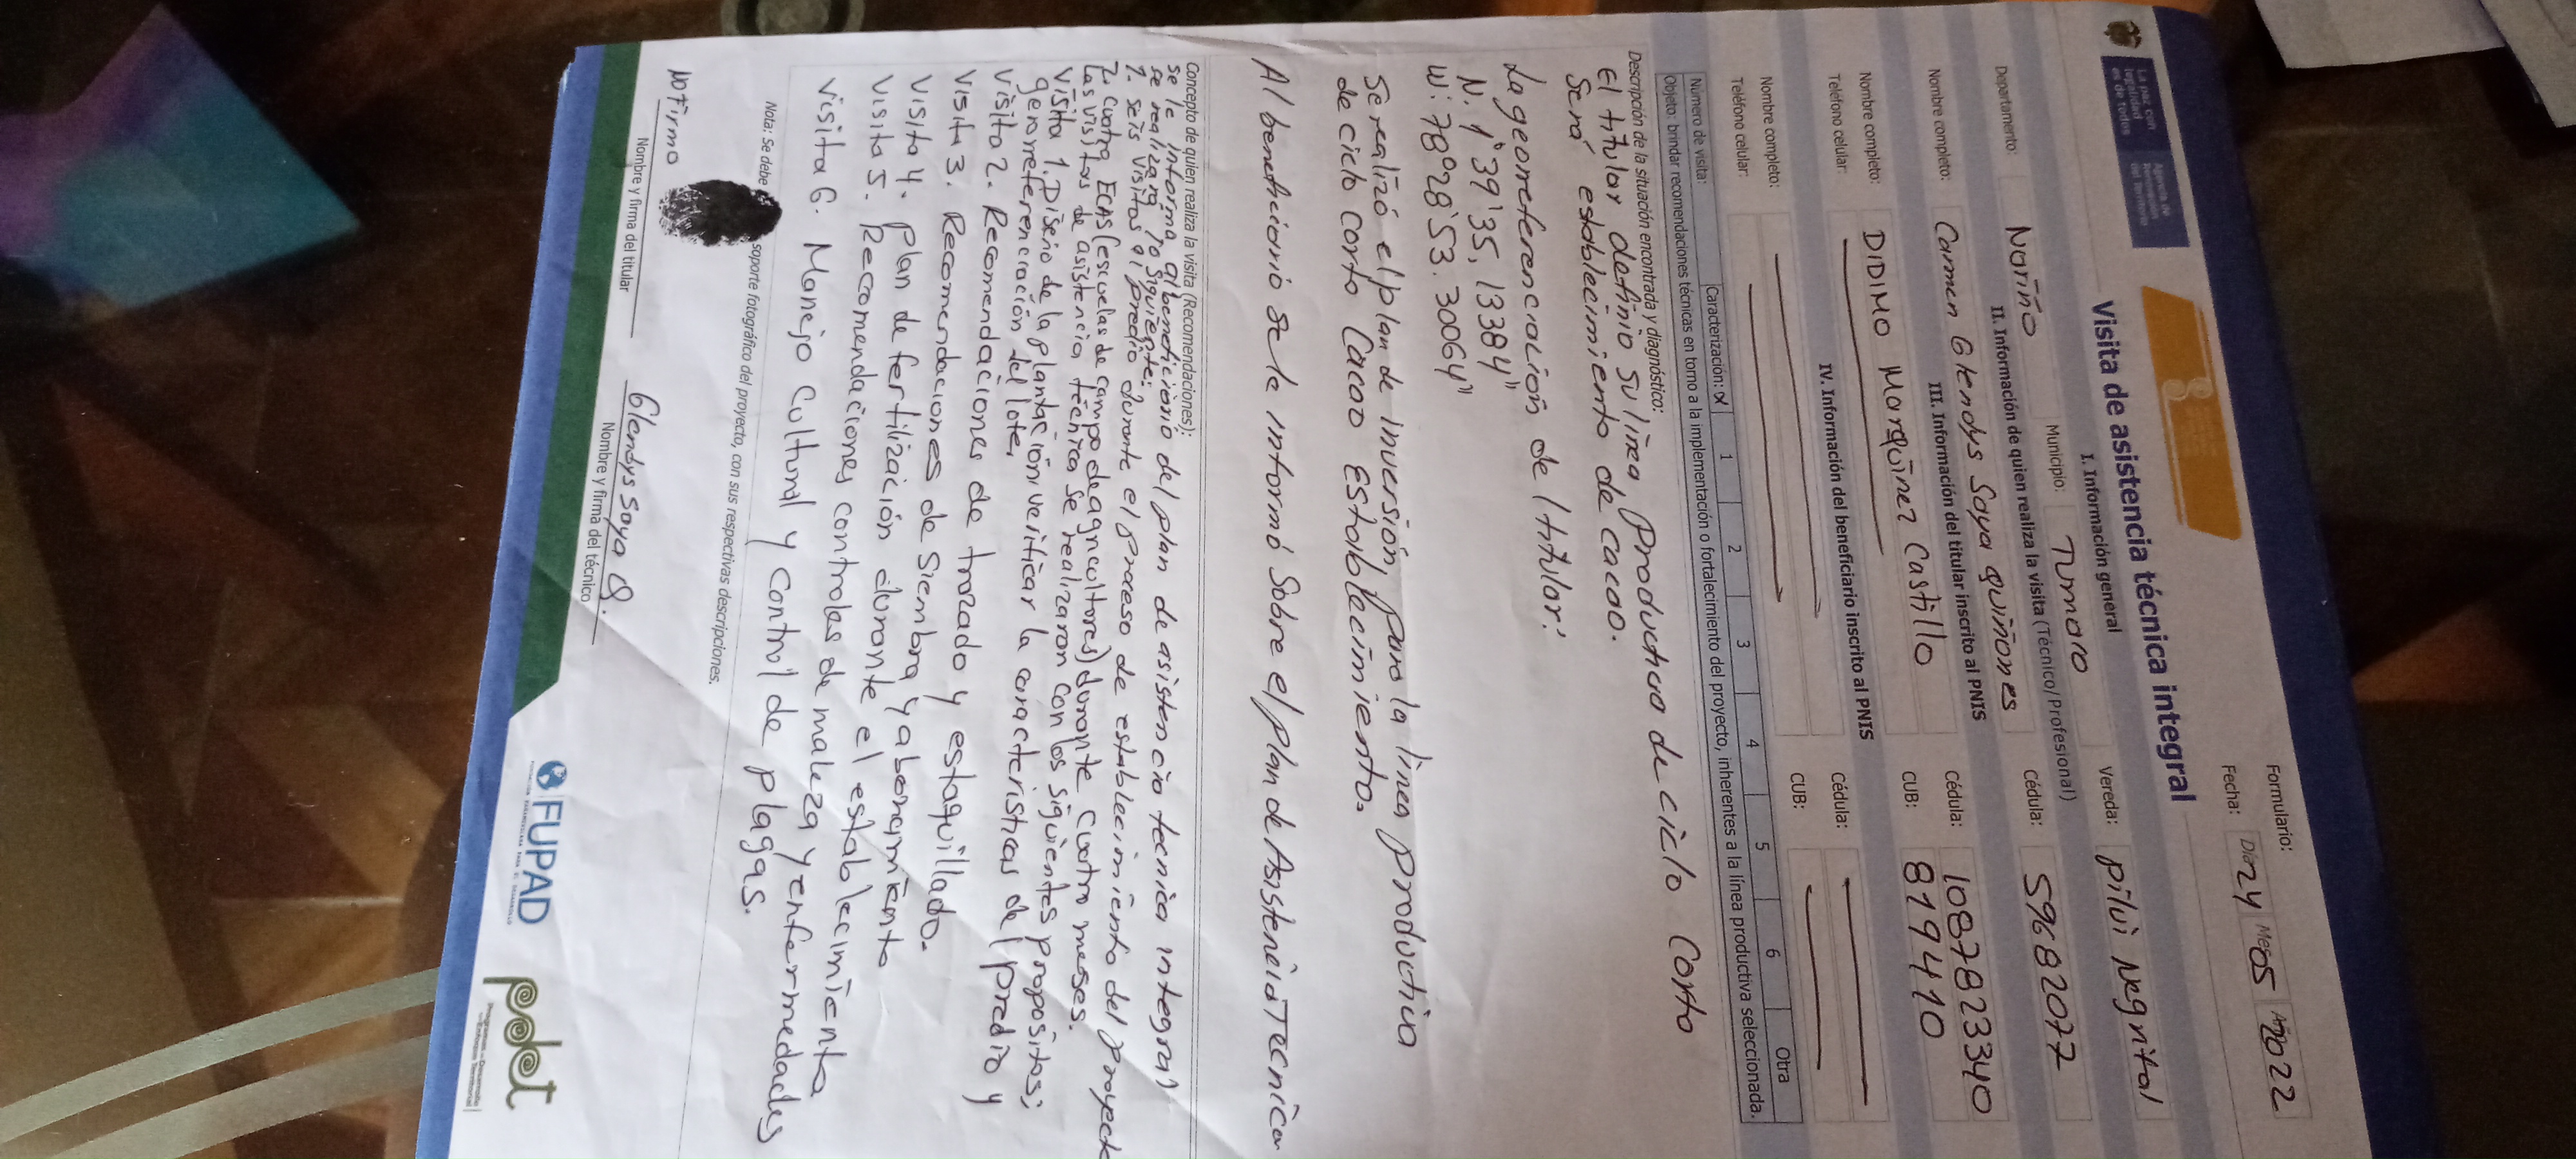 La paz con legalidad es de todos
Agencia de Renovación del Territorio
Formulario:
Fecha: Día 24 Mes 05 Año 2022
Visita de asistencia técnica integral
I. Información general
Departamento: Nariño Municipio: Tumaco Vereda: pilvi Negrital
II. Información de quien realiza la visita (Técnico/Profesional)
Nombre completo: Carmen Glendys Saya quiñones Cédula: 59682077
III. Información del titular inscrito al PNIS
Nombre completo: DIDIMO Marquinez Castillo Cédula: 1087823340
Teléfono celular: CUB: 819410
IV. Información del beneficiario inscrito al PNIS
Nombre completo: Cédula:
Teléfono celular: CUB:
Número de visita: Caracterización: α 1 2 3 4 5 6 Otra
Objeto: brindar recomendaciones técnicas en torno a la implementación o fortalecimiento del proyecto, inherentes a la línea productiva seleccionada.
Descripción de la situación encontrada y diagnóstico:
El titular definio su línea productiva de ciclo corto
Será establecimiento de cacao.
La georeferenciación del titular:
N. 1°39'35,13384"
W: 78°28'53.30064"
Se realizó el plan de inversión para la línea productiva
de ciclo corto Cacao Establecimiento.
Al beneficiario se le informó Sobre el plan de Asistencia Tecnica
Concepto de quien realiza la visita (Recomendaciones):
se le informa al beneficiario del plan de asistencia tecnica integral
se realizara lo siguiente:
1. seis visitas al predio durante el proceso de establecimiento del proyecto
2. cuatro ECAS (escuelas de campo de agricultores) durante cuatro meses.
Las visitas de asistencia técnica se realizaron con los siguientes propositos;
visita 1. Diseño de la plantación verificar la caracteristicas del predio y
georreferenciación del lote.
visita 2. Recomendaciones de trazado y estaquillado.
visita 3. Recomendaciones de siembra y abonamiento
visita 4. plan de fertilización durante el establecimiento
visita 5. Recomendaciones controles de maleza y enfermedades
visita 6. Manejo cultural y control de plagas.
Nota: Se debe soporte fotográfico del proyecto, con sus respectivas descripciones.
No firmo
Glendys Saya Q.
Nombre y firma del titular Nombre y firma del técnico
FUPAD
pdet